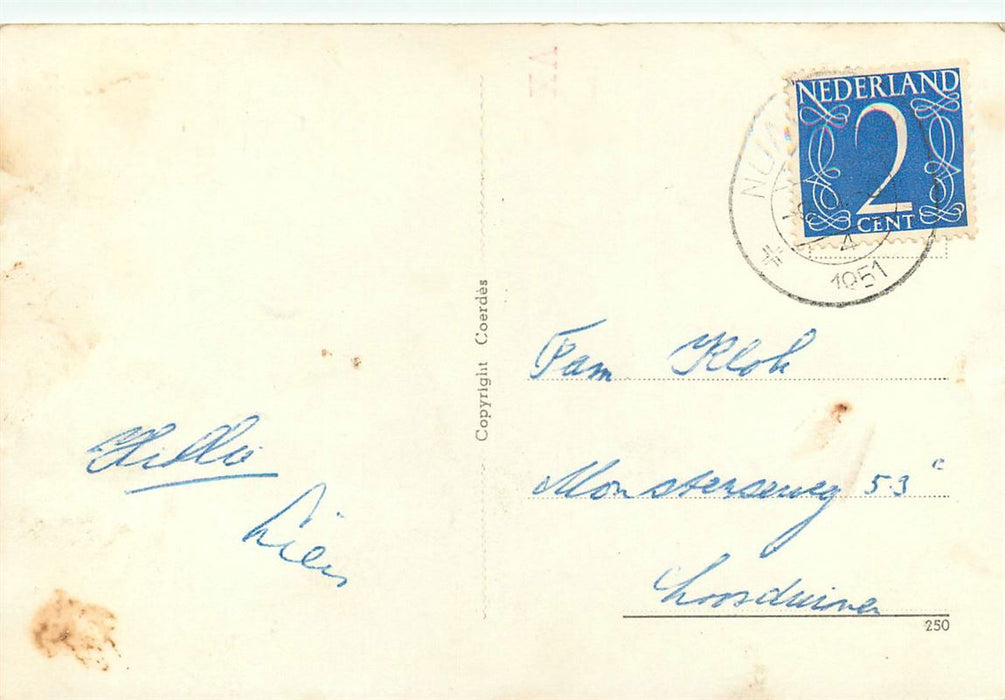 NEDERLAND
2
CENT
4
1951
Copyright Coerdès
Fam Klok
Monsterseweg 53
Loosduinen
Lien
250